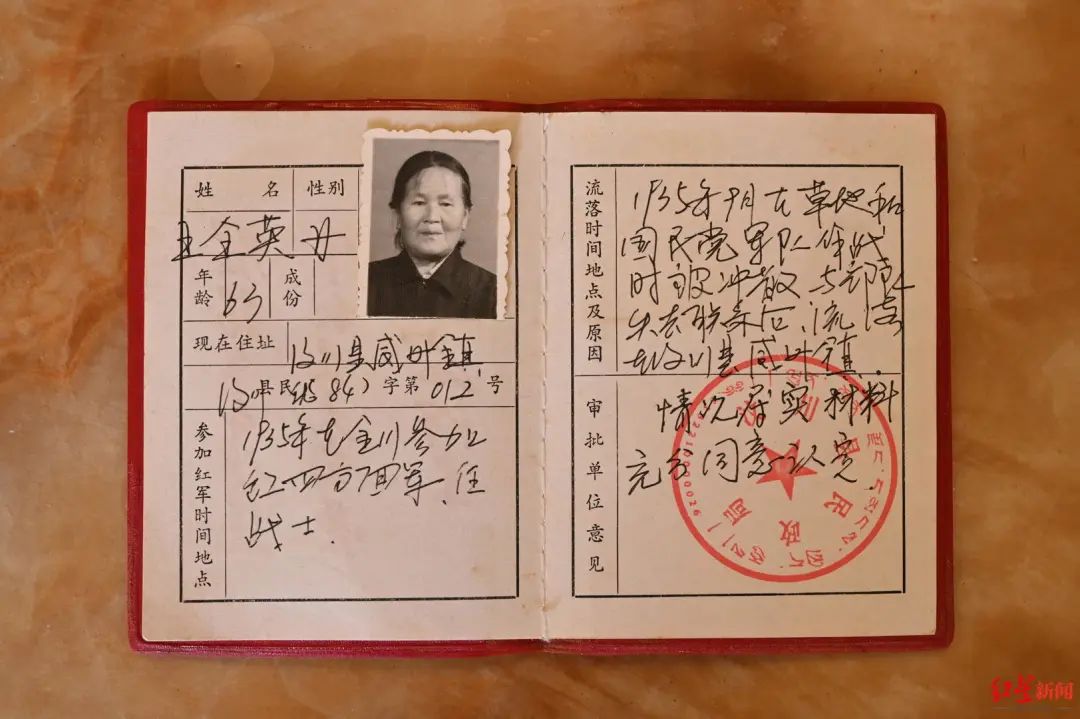 姓 名
性别
王全英
女
年龄
63
成份
现在住址
汶川县威州镇
汶川县民(84)字第012号
参加红军时间地点
1935年在金川参加
红四方面军、任
战士.
流落时间地点及原因
1935年9月在草地和
国民党军队作战
时被冲散 与部队
失去联系后、流落
在汶川县威州镇.
审批单位意见
情况属实 材料
充分同意认定.
民政局
红星新闻